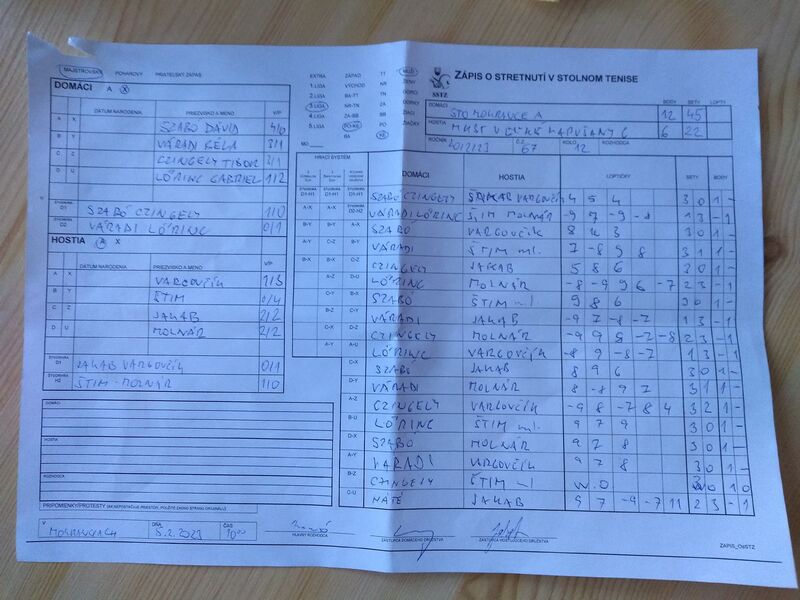 MAJSTROVSKÝ POHÁROVÝ PRIATEĽSKÝ ZÁPAS
DOMÁCI A X
DÁTUM NARODENIA PRIEZVISKO A MENO V/P
A X SZABÓ DÁVID 4/0
B Y VÁRADI BÉLA 3/1
C Z CZINGELY TIBOR 3/1
D U LŐRINC GABRIEL 1/2
ŠTVORHRA D1 SZABÓ CZINGELY 1/0
ŠTVORHRA D2 VÁRADI LŐRINC 0/1
HOSTIA A X
DÁTUM NARODENIA PRIEZVISKO A MENO V/P
A X VARGOVČÍK 1/3
B Y ŠTIM 0/4
C Z JAKAB 2/2
D U MOLNÁR 2/2
ŠTVORHRA JAKAB VARGOVČÍK 0/1
ŠTVORHRA H2 ŠTIM - MOLNÁR 1/0
DOMÁCI
HOSTIA
ROZHODCA
PRIPOMIENKY/PROTESTY (AK NEPOSTAČUJE PRIESTOR, POUŽITE ZADNÚ STRANU ORIGINÁLU)
V MOKRANCIACH DŇA 5.2.2023 ČAS 10:00
HLAVNÝ ROZHODCA
ZÁSTUPCA DOMÁCEHO DRUŽSTVA
ZÁSTUPCA HOSŤUJÚCEHO DRUŽSTVA
EXTRA ZÁPAD TT MUŽI
1. LIGA VÝCHOD NR ŽENY
2. LIGA BA-TT TN
3. LIGA NR-TN ZA
4. LIGA ZA-BB BB
5. LIGA PO-KE PO
BA KE
SSTZ
ZÁPIS O STRETNUTÍ V STOLNOM TENISE
BODY SETY LOPTY
DOMÁCI STO MOKRANCE A 12 45
HOSTIA MKST VEĽKÉ KAPUŠANY C 6 22
ROČNÍK 2022/23 Č.Z. 67 KOLO 12 ROZHODCA
HRACÍ SYSTÉM
DOMÁCI HOSTIA LOPTIČKY SETY BODY
SZABÓ CZINGELY JAKAB VARGOVČÍK 4 5 4 3 0 1 -
VÁRADI LŐRINC ŠTIM MOLNÁR -9 7 -9 -8 1 3 - 1
SZABÓ VARGOVČÍK 8 4 3 3 0 1 -
VÁRADI ŠTIM ml. 7 -8 9 8 3 1 1 -
CZINGELY JAKAB 5 8 6 3 0 1 -
LŐRINC MOLNÁR -8 -9 9 6 -7 2 3 - 1
SZABÓ ŠTIM ml 9 8 6 3 0 1 -
VÁRADI JAKAB -9 7 -8 -8 1 3 - 1
CZINGELY MOLNÁR -9 9 8 -7 -8 2 3 - 1
LŐRINC VARGOVČÍK -8 9 -8 -7 1 3 - 1
SZABÓ JAKAB 8 9 6 3 0 1 -
VÁRADI MOLNÁR 8 -8 9 7 3 1 1 -
CZINGELY VARGOVČÍK -9 8 -7 8 4 3 2 1 -
LŐRINC ŠTIM ml. 9 7 9 3 0 1 -
SZABÓ MOLNÁR 9 7 8 3 0 1 -
VÁRADI VARGOVČÍK 9 7 8 3 0 1 -
CZINGELY ŠTIM ml W.O 3 0 1 0
MÁTÉ JAKAB 9 7 -9 -7 11 2 3 - 1
ZÁPIS_OdST2